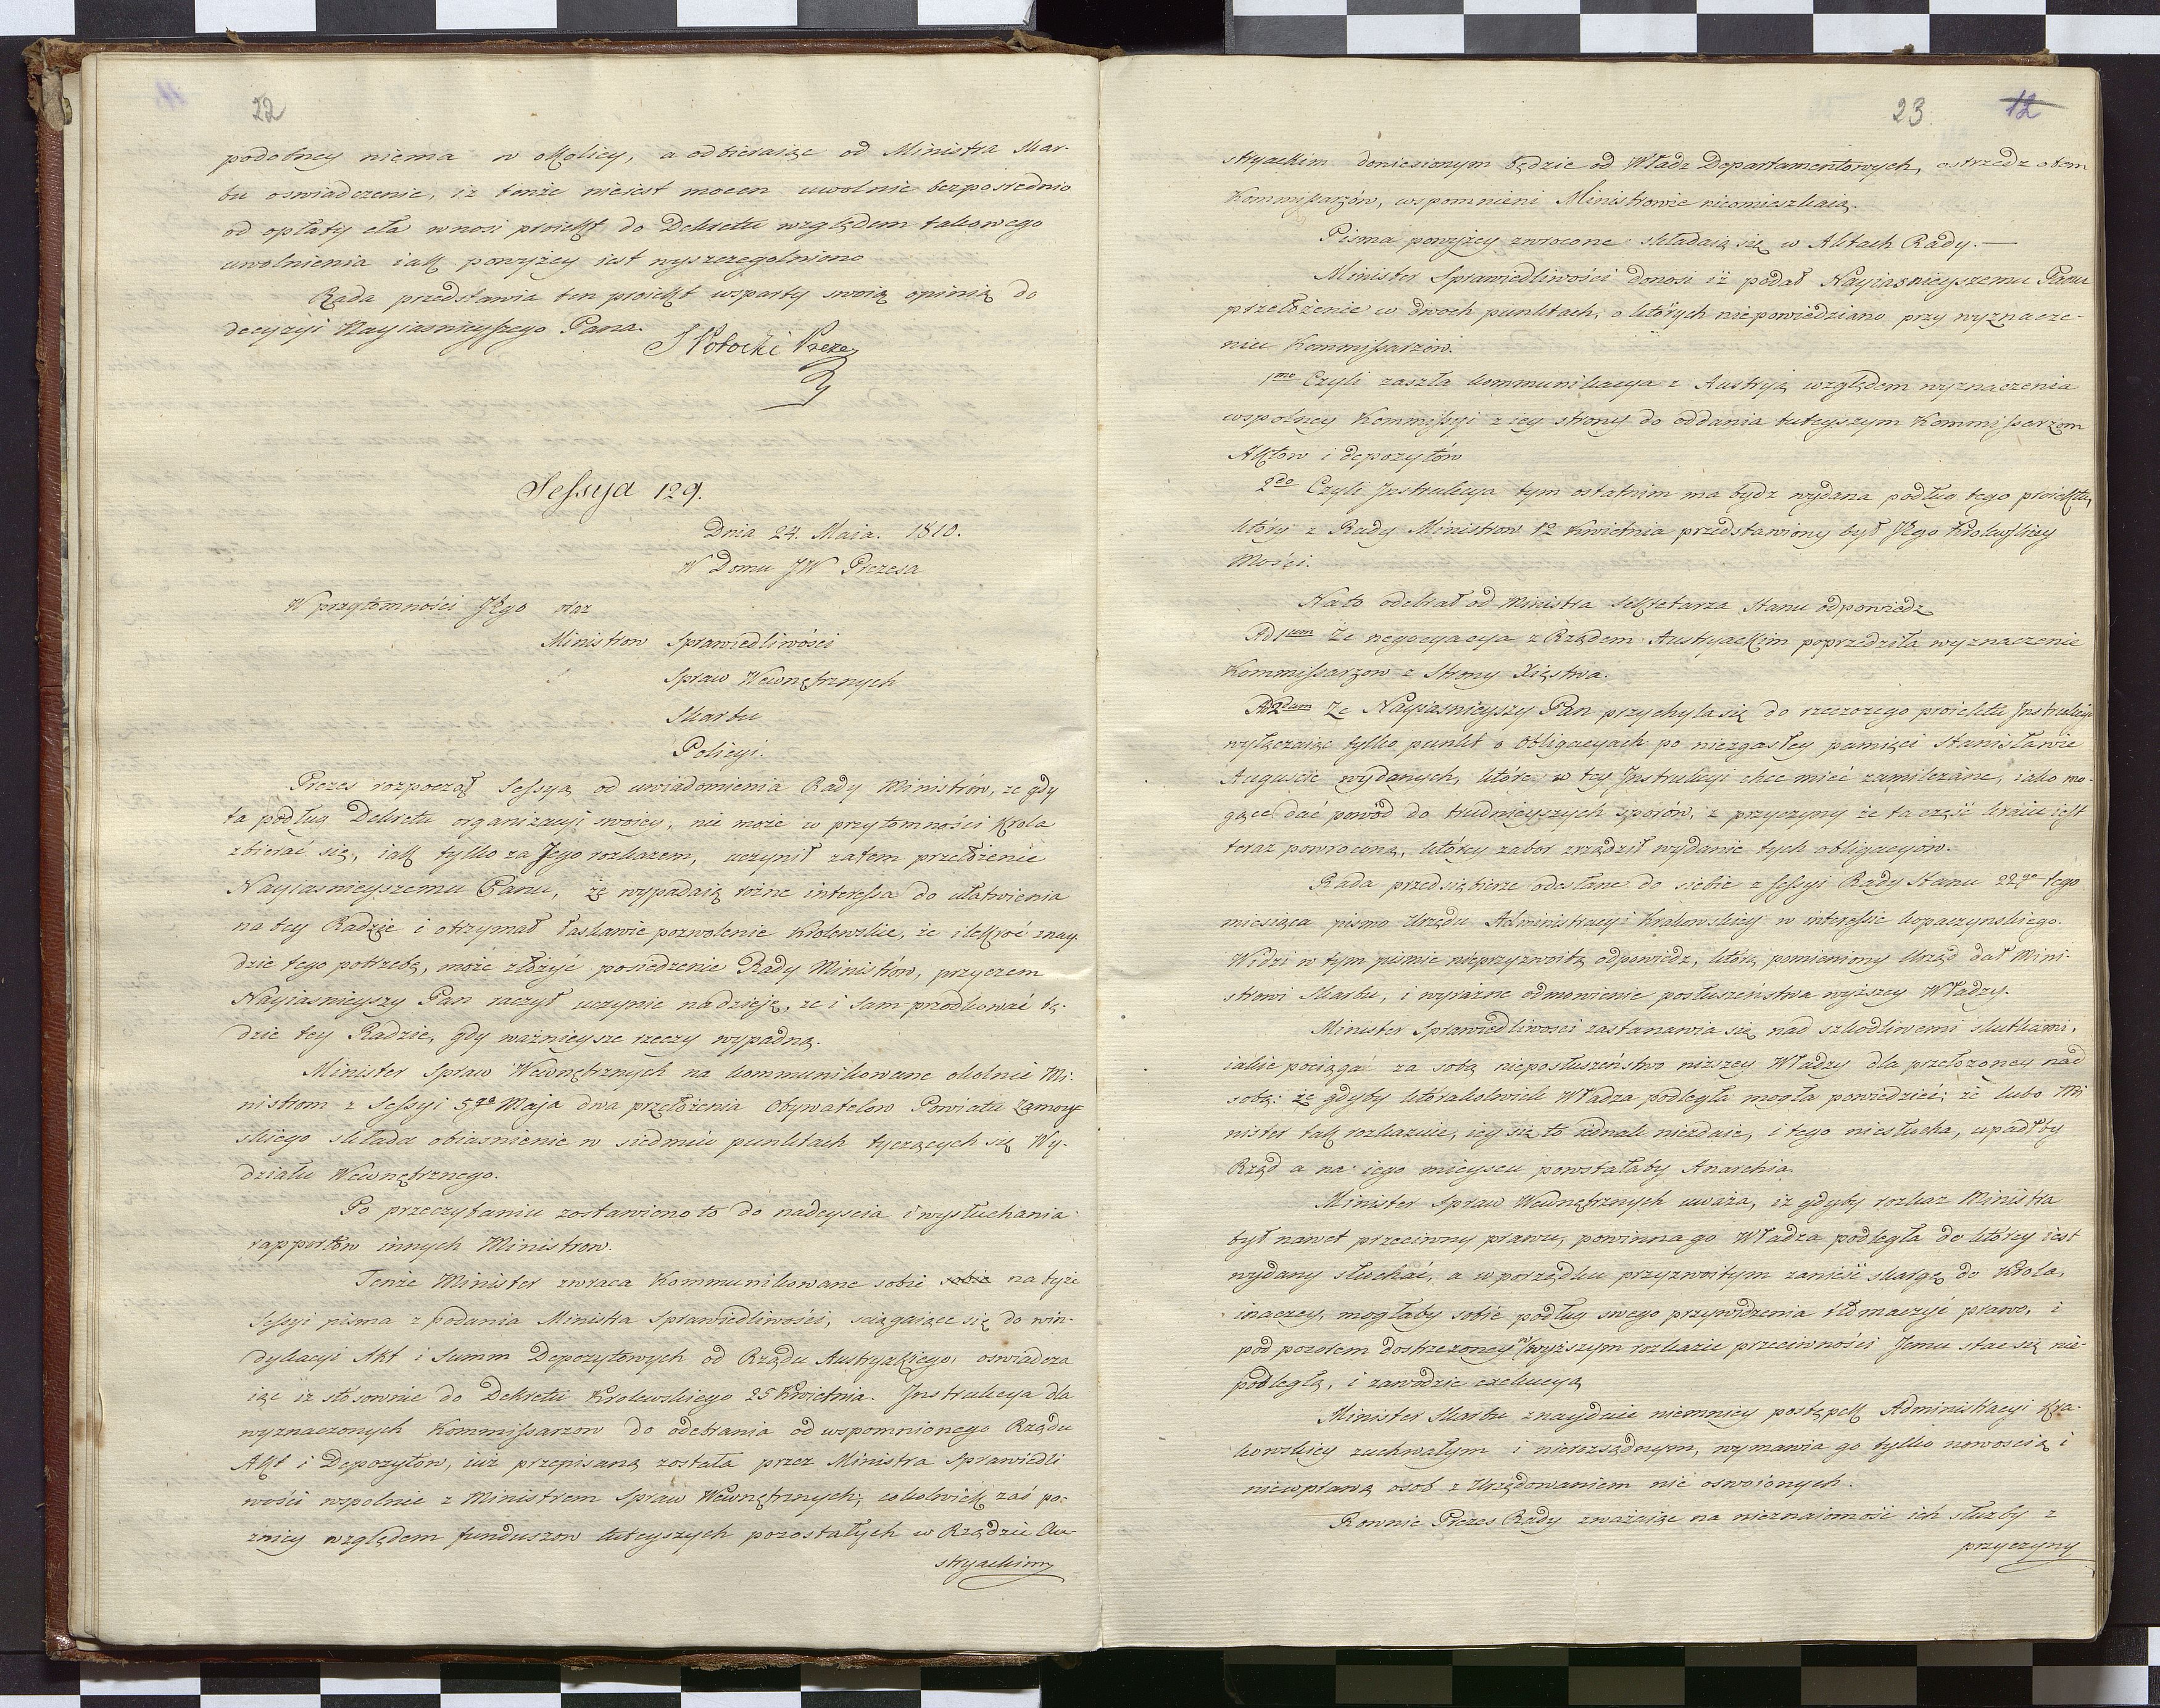 22
podobney niema w okolicy, a odbieraiąc od Ministra Skar-
bu oswiadczenie, iz tenże nieiest mocen uwolnic bezposrednio
od opłaty cła wnosi proiekt do Dekretu względem takowego
uwolnienia iak powyżey iest wyszczegolniono
Rada przedstawia ten proiekt wsparty swoią opinią do
decyzyi Nayiasnieyszego Pana.
S Potocki Prezes
Sessya 129.
Dnia 24. Maia. 1810.
W Domu JW Prezesa
W przytomności JEgo oraz
Ministrow Sprawiedliwości
Spraw Wewnętrznych
Skarbu
Policyi.
Prezes rozpoczął Sessyą od uwiadomienia Rady Ministrów, ze gdy
ta podług Dekretu organizacyi swoiey, nie może w przytomności Krola
zbierać się, iak tylko za Jego rozkazem, uczynił zatem przełożenie
Nayiasnieyszemu Panu, żę wypadaią rożne interessa do ułatwienia
na tey Radzie i otrzymał łaskawie pozwolenie Krolewskie, że ilekroć znay-
dzie tego potrzebę, może złożyć posiedzenie Rady Ministrów, przyczem
Nayiasnieyszy Pan raczył uczynic nadzieję, ze i sam prodkować bę-
dzie tey Radzie, gdy ważnieysze rzeczy wypadną.
Minister Spraw Wewnętrznych na kommunikowane okolnie Mi-
nistrom z Sessyi 5go Maja dwa przełożenia Obywatelow Powiatu Zamoy-
skiego składa obiasnienie w siedmiu punktach tyczących się Wy-
działu Wewnętrznego.
Po przeczytaniu zostawiono to do nadeyscia i wysłuchania
rapportów innych Ministrow.
Tenże Minister zwraca Kommunikowane sobie sobie na teyże
Sessyi pisma z podania Ministra Sprawiedliwości, sciągaiące się do win-
dykacyi Akt i Summ Depozytowych od Rządu Austryackiego, oswiadcza
iąc iż stosownie do Dekretu Krolewskiego 25 Kwietnia. Jnstrukcya dla
wyznaczonych Kommissarzow do odebrania od wspomnionego Rządu
Akt i Depozytow, iuż przepisaną została przez Ministra Sprawiedli
wości wspolnie z Ministrem Spraw Wewnętrznych; cokolwiek zaś po-
zniey względem funduszow tuteyszych pozostałych w Rządzie Au-
stryackim
23 12
stryackim doniesionym będzie od Władz Departamentowych, ostrzedz otem
Kommissarzów, wspomnieni Ministrowie nieomieszkaią.
Pisma powyżey zwrocone składaią się w Aktach Rady.—
Minister Sprawiedliwości donosi iż podał Nayiasnieyszemu Panu
przełożenie w dwoch punktach, o których niepowiedziano przy wyznacze-
niu Kommissarzów.
1mo Czyli zaszła kommunikacya z Austryą względem wyznaczenia
wspolney Kommissyi z iey strony do oddania tuteyszym Kommissarzom
Aktow i depozytów
2do Czyli Jnstrukcya tym ostatnim ma bydz wydana podług tego proiektu,
który z Rady Ministrow 12 Kwietnia przedstawiony był JEgo Krolewskiey
Mości.
Na to odebrał od Ministra Sekretarza Stanu odpowiedz
Ad 1um Że negocyacya z Rządem Austryackim poprzedziła wyznaczenie
Kommissarzow z Strony Xięstwa.
Ad 2dum Ze Nayiasnieyszy Pan przychyla się do rzeczonego proiektu Jnstrukcyi
wyłączaiąc tylko punkt o Obligacyach po niezgasłey pamięci Stanisławie
Auguscie wydanych, które w tey Jnstrukcyi chce mieć zamilczane, iako mo-
gące dać powód do trudnieyszych sporów, z przyczyny że ta część kraiu iest
teraz powroconą, którey zabor zrządził wydanie tych obligacyow.
Rada przedsiębierze odesłane do siebie z Sessyi Rady Stanu 22go tego
miesiąca pismo Urzędu Administracyi Krakowskiey w interessie Kopaczynskiego.
Widzi w tym pismie nieprzyzwoitą odpowiedz, którą pomieniony Urząd dał Mini-
strowi Skarbu, i wyrażne odmowienie posłuszeństwa wyższey Władzy.
Minister Sprawiedliwosci zastanawia się nad szkodliwemi skutkami,
iakie pociąga za sobą nieposłuszeństwo niższey Władzy dla przełożoney nad
sobą: żę gdyby którakolwiek Władza podległa mogła powiedzieć, że lubo Mi
nister tak rozkazuie, iey się to iednak niezdaie, i tego niesłucha, upadłby
Rząd a na iego mieyscu powstałaby Anarchia.
Minister Spraw Wewnętrznych uważa, iż gdyby rozkaz Ministra
był nawet przeciwny prawu, powinna go Władza podległa do którey iest
wydany słuchać, a w porządku przyzwoitym zanieść skargę do Króla,
inaczey, mogłaby sobie podług swego przywidzenia tłómaczyć prawo, i
pod pozorem dostrzezoney w wyższym rozkazie przeciwności Jemu stac się nie-
podległą, i zawodzie exekucyą
Minister Skarbu znayduie niemniey postępek Administracyi Kra-
kowskiey zuchwałym i nierozsądnym, wymawia go tylko nowoscią i
niewprawą osob z Urzędowaniem nie oswoionych.
Rownie Prezes Rady zważaiąc na nieznaiomość ich służby z
przyczyny